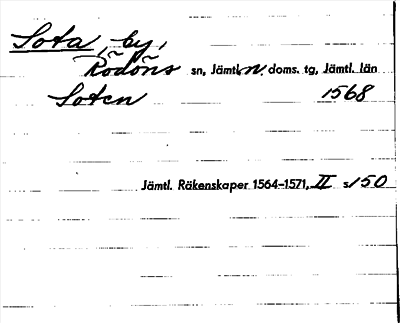 Sota, by,
Rödöns sn, Jämtl. n. doms. tg, Jämtl. län
Soten 1568
Jämtl. Räkenskaper 1564-1571, II s. 150